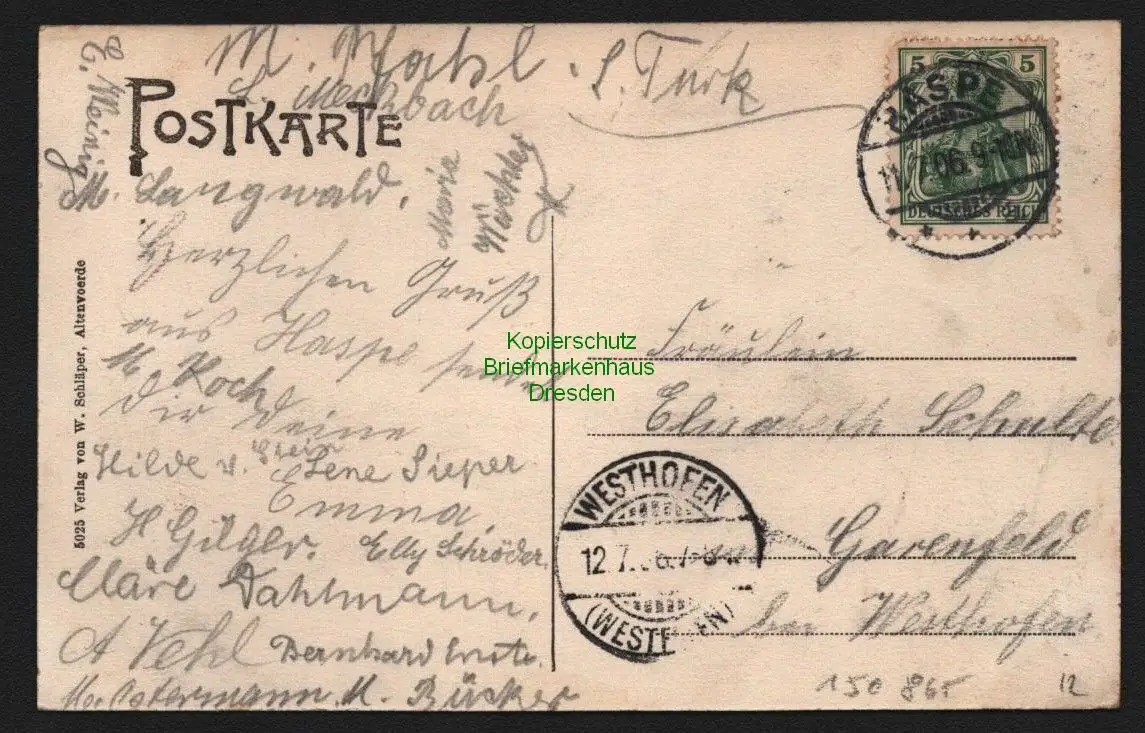 M. Pfahl
S. Turk
L. Meckbach
E. Meinig
POSTKARTE
M. Langwald.
Marie
Herzlichen Gruß
aus Haspe sendet
M. Koch
Dir Deine
Hilde v. Stein
Lene Sieper.
Emma.
H Gilger. Elly Schröder.
Kläre Dahlmann.
A Vehl Bernhard
M. Ostermann. M. Bücker
5025 Verlag von W. Schläper, Altenvoerde
5 5
DEUTSCHES REICH
HASPE
11.7.06.9-10N
Kopierschutz
Briefmarkenhaus
Dresden
Fräulein
Elisabeth Schulte.
Garenfeld
bei Westhofen
WESTHOFEN
12.7.06.7-8
(WESTFALEN)
150 865
12